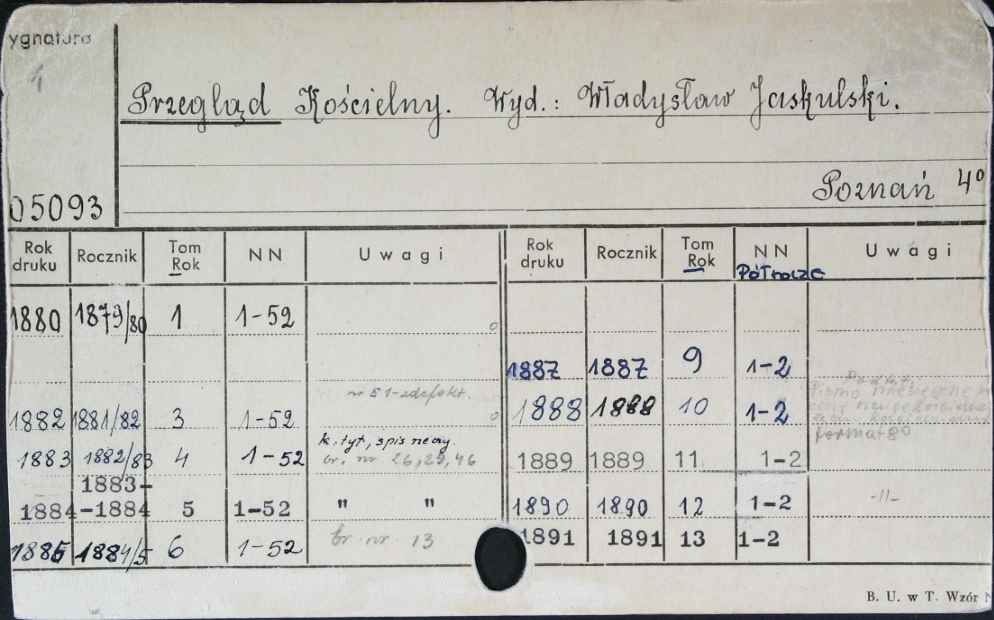 ygnatura
1
Przegląd Kościelny. Wyd.: Władysław Jaskulski.
Poznań 4°
05093
Rok druku Rocznik Tom Rok NN Uwagi Rok druku Rocznik Tom Rok NN Półrocze Uwagi
1880 1879/80 1 1-52
1887 1887 9 1-2
nr 51-zdefekt.
1882 1881/82 3 1-52 1888 1888 10 1-2
k. tyt, spis rzeczy
format 8°
1883 1882/83 4 1-52 br. nr 26, 29, 46 1889 1889 11 1-2
1883-
1884 -1884 5 1-52 " " 1890 1890 12 1-2 -11-
1885 1884/5 6 1-52 br. nr. 13 1891 1891 13 1-2
B. U. w T. Wzór